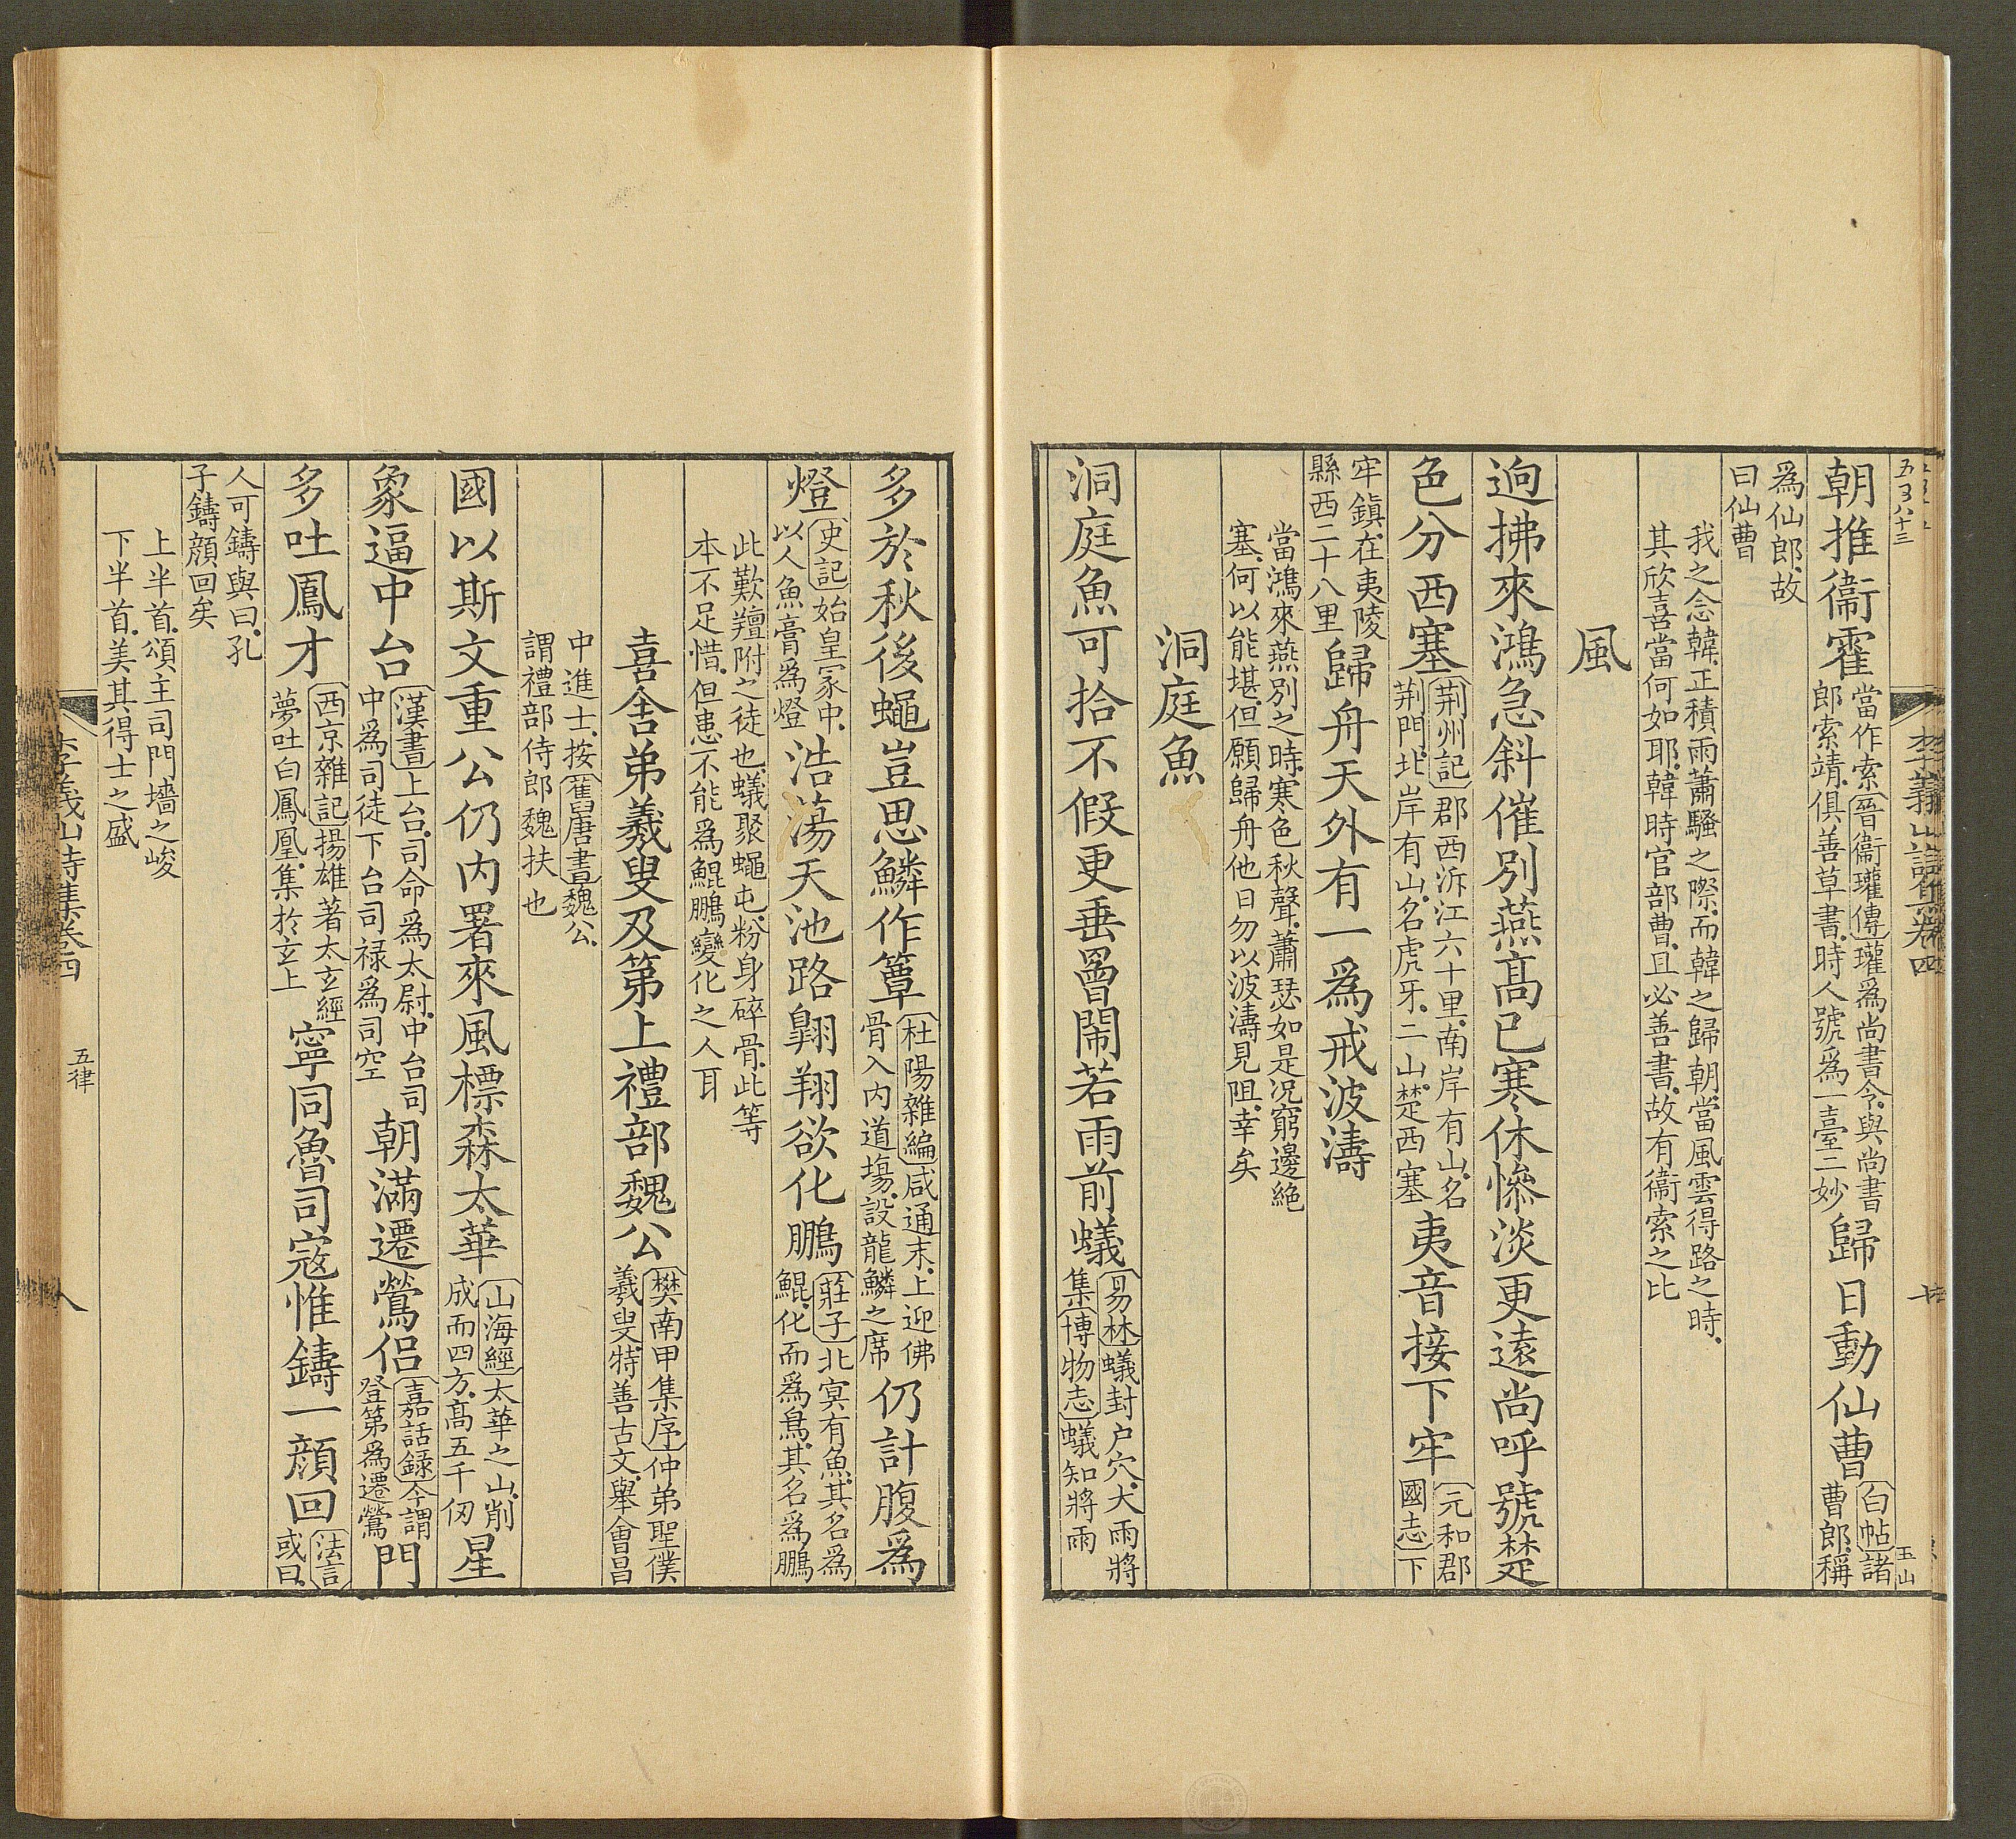 朝推衞霍當作索晉衞瓘傳瓘爲尚書令與尚書郎索靖俱善草書時人號爲一臺二妙歸日動仙曹白帖諸曹郎稱
爲仙郎故曰仙曹
我之念韓正積雨蕭騷之際而韓之歸朝當風雲得路之時
其欣喜當何如耶韓時官部曹且必善書故有衞索之比
風
逈拂來鴻急斜催別燕髙已寒休慘淡更遠尚呼號楚
色分西塞荆州記郡西泝江六十里南岸有山名荆門北岸有山名虎牙二山楚西塞夷音接下牢元和郡國志下
牢鎮在夷陵縣西二十八里歸舟天外有一爲戒波濤
當鴻來燕別之時寒色秋聲蕭瑟如是况窮邊絶
塞何以能堪但願歸舟他日勿以波濤見阻幸矣
洞庭魚
洞庭魚可拾不假更垂罾鬧若雨前蟻易林蟻封户穴大雨將集博物志蟻知將雨
多於秋後蠅豈思鱗作簟杜陽雜編咸通末上迎佛骨入内道塲設龍鱗之席仍計腹爲
燈史記始皇冢中以人魚膏爲燈浩蕩天池路翺翔欲化鵬莊子北冥有魚其名爲鯤化而爲鳥其名爲鵬
此歎羶附之徒也蟻聚蠅屯粉身碎骨此等
本不足惜但患不能爲鯤鵬變化之人耳
喜舍弟羲叟及第上禮部魏公樊南甲集序仲弟聖僕羲叟特善古文舉會昌
中進士按舊唐書魏公謂禮部侍郎魏扶也
國以斯文重公仍内署來風標森太華山海經太華之山削成而四方髙五千仞星
象逼中台漢書上台司命爲太尉中台司中爲司徒下台司禄爲司空朝滿遷鶯侣嘉話録今謂登第爲遷鶯門
多吐鳳才西京雜記揚雄著太玄經夢吐白鳳凰集於玄上寧同魯司寇惟鑄一顔回法言或曰
人可鑄與曰孔子鑄顔回矣
上半首頌主司門墻之峻
下半首美其得士之盛
李義山詩集卷四
五律